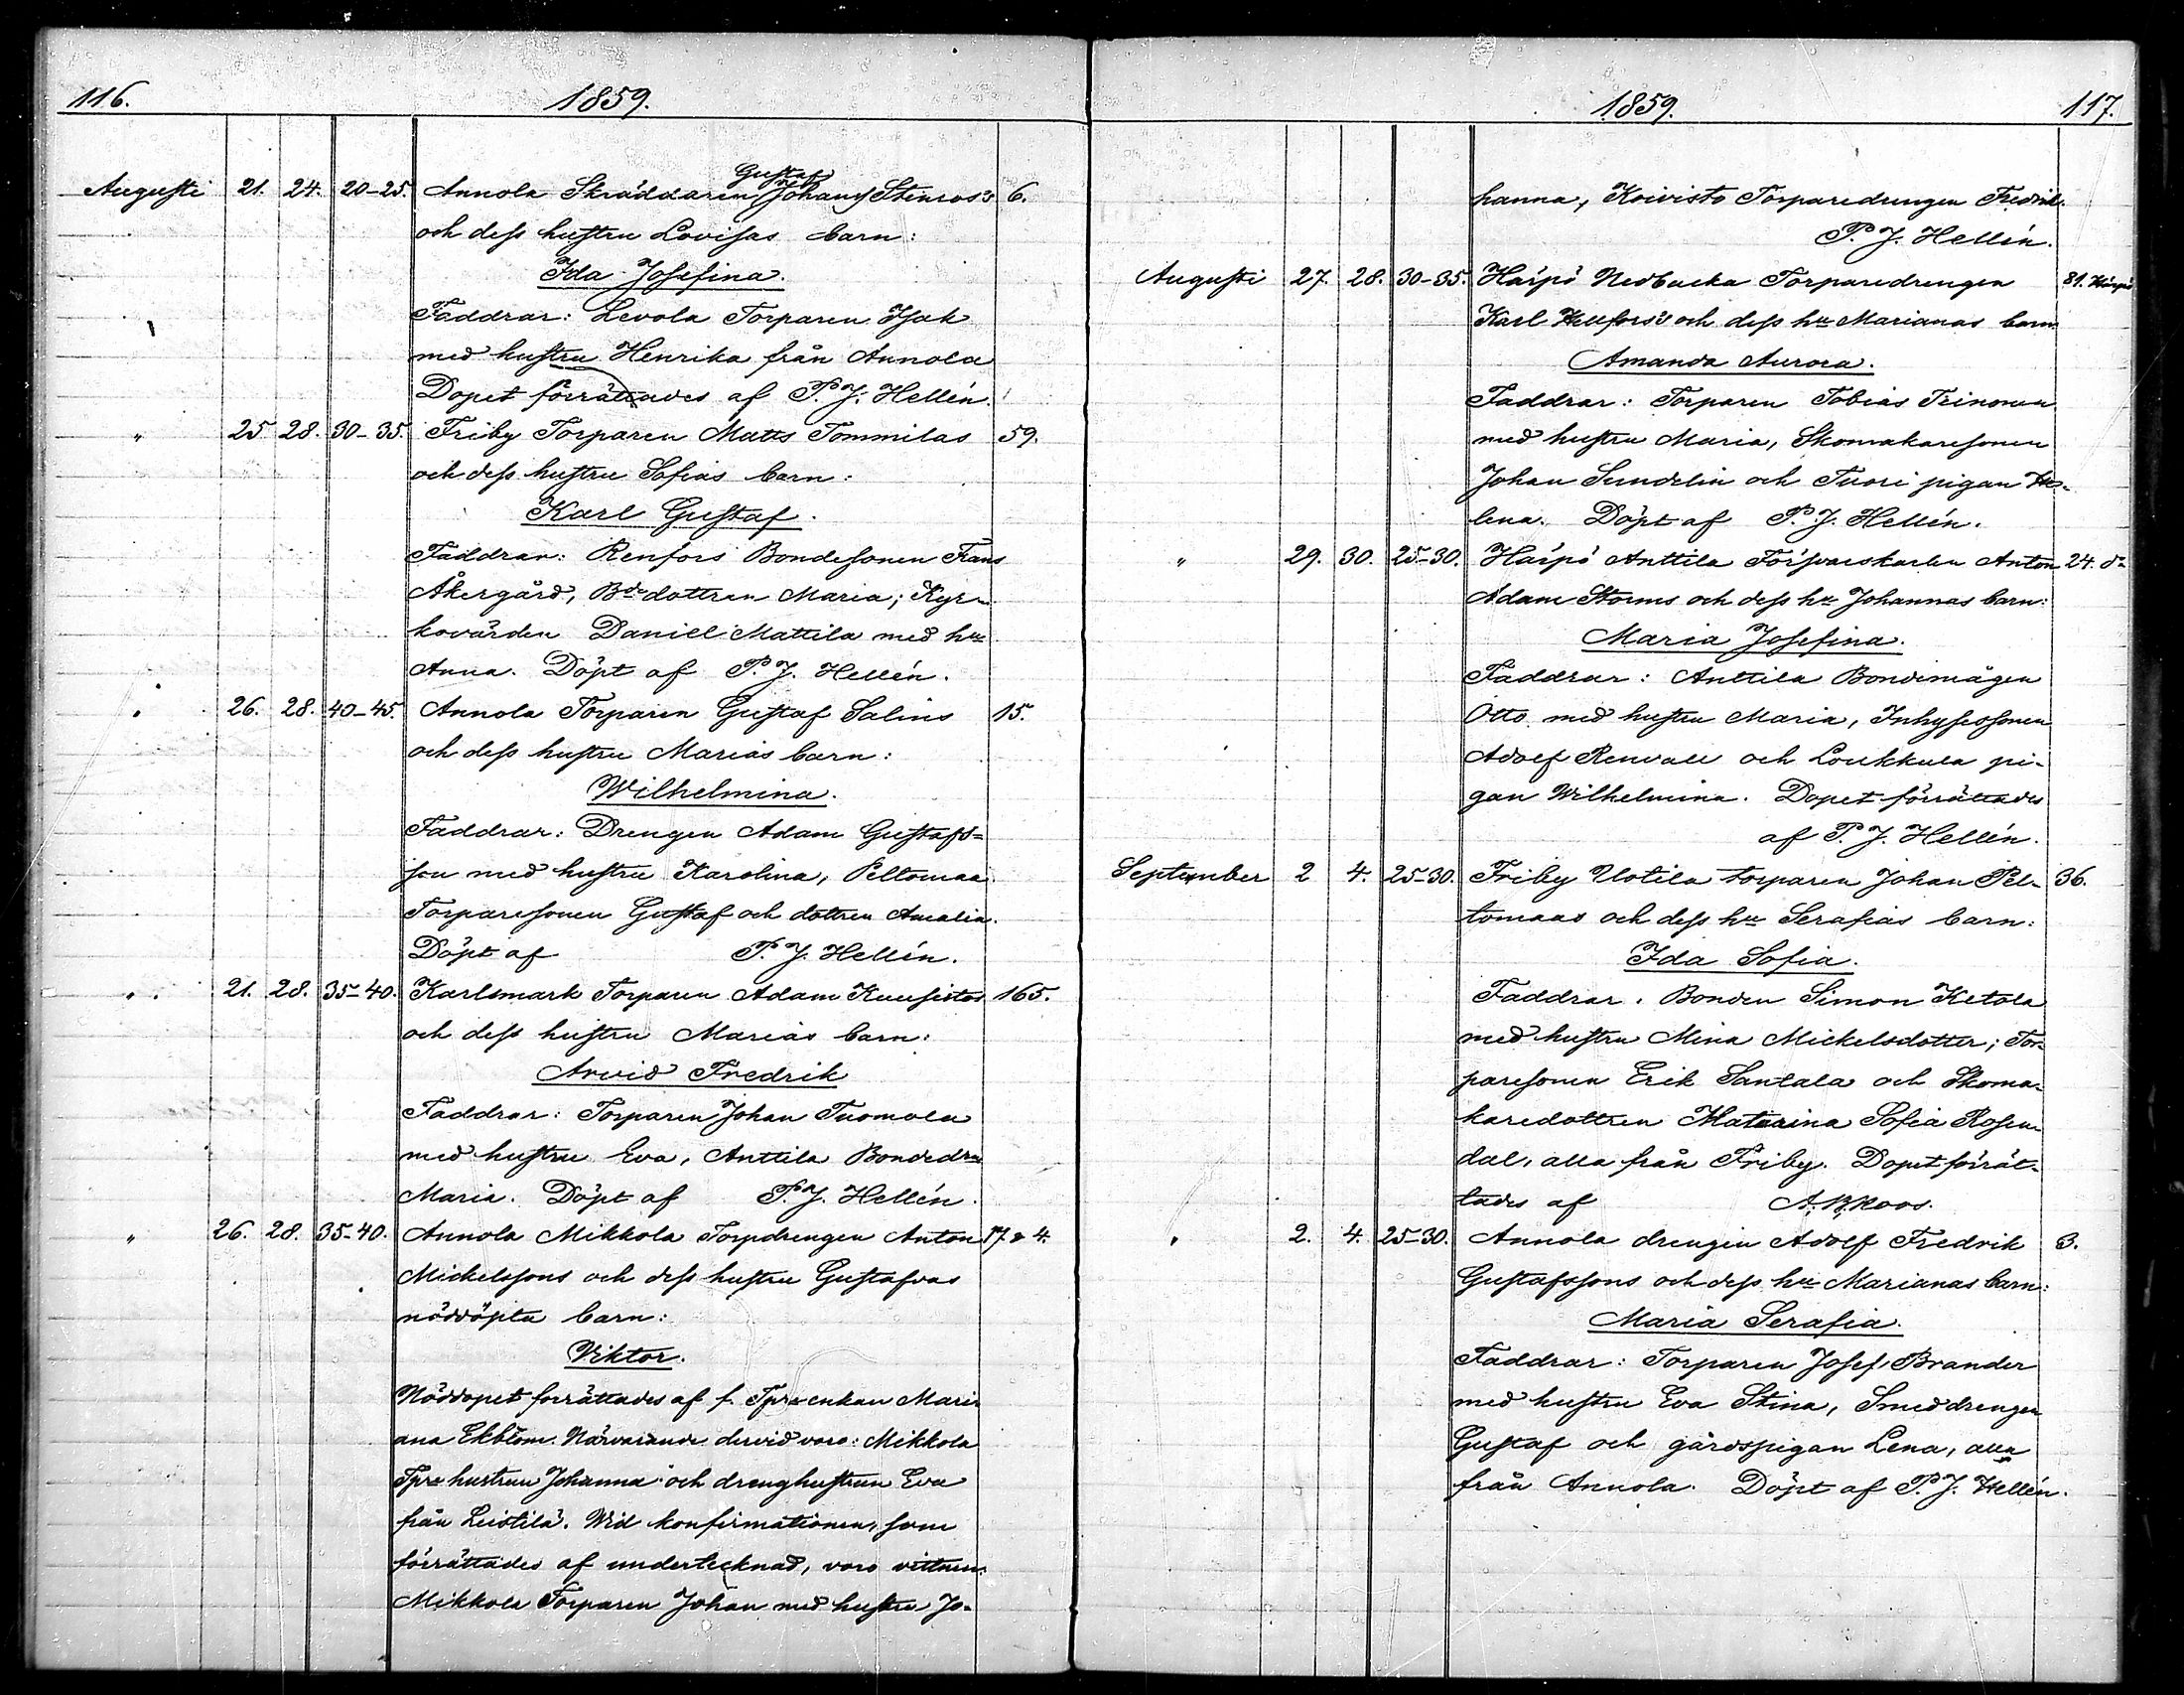 116.
1859.
Augusti 21. 24. 20-25. Annola Skräddaren Gustaf (Johan) Stenros's 6.
och dess hustru Lovisas barn:
Ida Josefina.
Faddrar: Levola Torparen Isak
med hustru Henrika från Annola
Dopet förrättades af P. J. Hellén.
" 25 28. 30-35. Friby Torparen Matts Tommilas 59.
och dess hustru Sofias barn:
Karl Gustaf.
Faddrar: Renfors Bondesonen Frans
Åkergård, Bde dottren Maria; Kyr-
kovärden Daniel Mattila med hu
Anna. Döpt af P. J. Hellén.
" 26. 28. 40-45. Annola Torparen Gustaf Salins 15.
och dess hustru Marias barn:
Wilhelmina.
Faddrar: Drengen Adam Gustafs=
son med hustru Karolina, Peltomaa
Torparesonen Gustaf och dottren Amalia.
Döpt af P. J. Hellén.
" 21. 28. 35-40. Karlsmark Torparen Adam Kuusistos 165.
och dess hustru Marias barn:
Arvid Fredrik
Faddrar: Torparen Johan Tuomola
med hustru Eva, Anttila Bondedrn
Maria. Döpt af P. J. Hellén.
" 26. 28. 35-40. Annola Mikkola Torpdrengen Anton 17 & 4.
Mickelssons och dess hustru Gustafvas
nöddöpta barn:
Viktor.
Nöddopet förrättades af f. Tpre enkan Mari-
ana Ekblom. Närvarande dervid voro: Mikkola
Tpre hustrun Johanna och drenghustrun Eva
från Leistilä. Wid konfirmationen, som
förrättades af undertecknad, voro vittnen:
Mikkola Torparen Johan med hustru Jo-
1859.
117.
hanna, Koivisto Torparedrengen Fredrik.
P. J. Hellén.
Augusti 27. 28. 30-35. Haipö Nedbacka Torparedrengen 81. Haipö
Karl Hellfors's och dess hu Marianas barn
Amanda Aurora.
Faddrar: Torparen Tobias Trinonen
med hustru Maria, Skomakaresonen
Johan Sundelin och Tuori pigan He-
lena. Döpt af P. J. Hellén.
" 29. 30. 25-30. Haipö Anttila Försvarskarlen Anton 24. do
Adam Storms och dess hu Johannas barn:
Maria Josefina.
Faddrar: Anttila Bondemågen
Otto med hustru Maria, Inhysessonen
Adolf Renvall och Loukkula pi-
gan Wilhelmina. Dopet förrättades
af P. J. Hellén.
September 2 4. 25-30. Friby Uotila torparen Johan Pel- 36.
tomaas och dess hu Serafias barn:
Ida Sofia.
Faddrar: Bonden Simon Ketola
med hustru Mina Mickelsdotter; Tor-
paresonen Erik Santala och Skoma-
karedottren Katarina Sofia Rosen-
dal, alla från Friby. Dopet förrät-
tades af A. B. Roos.
" 2. 4. 25-30. Annola drengen Adolf Fredrik 3.
Gustafssons och dess hu Marianas barn:
Maria Serafia.
Faddrar: Torparen Josef Brander
med hustru Eva Stina, Smeddrengen
Gustaf och gårdspigan Lena, alla
från Annola. Döpt af P. J. Hellén.